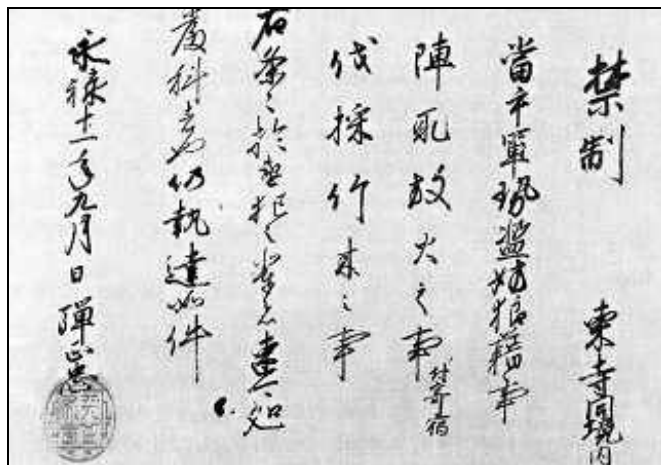 禁制 東寺同境内
當手軍勢濫妨狼藉事
陣取放火之事 付寄宿
伐採竹木之事
右条々於違犯之輩者速可処
厳科者也仍執達如件
永禄十一年九月日 弾正忠